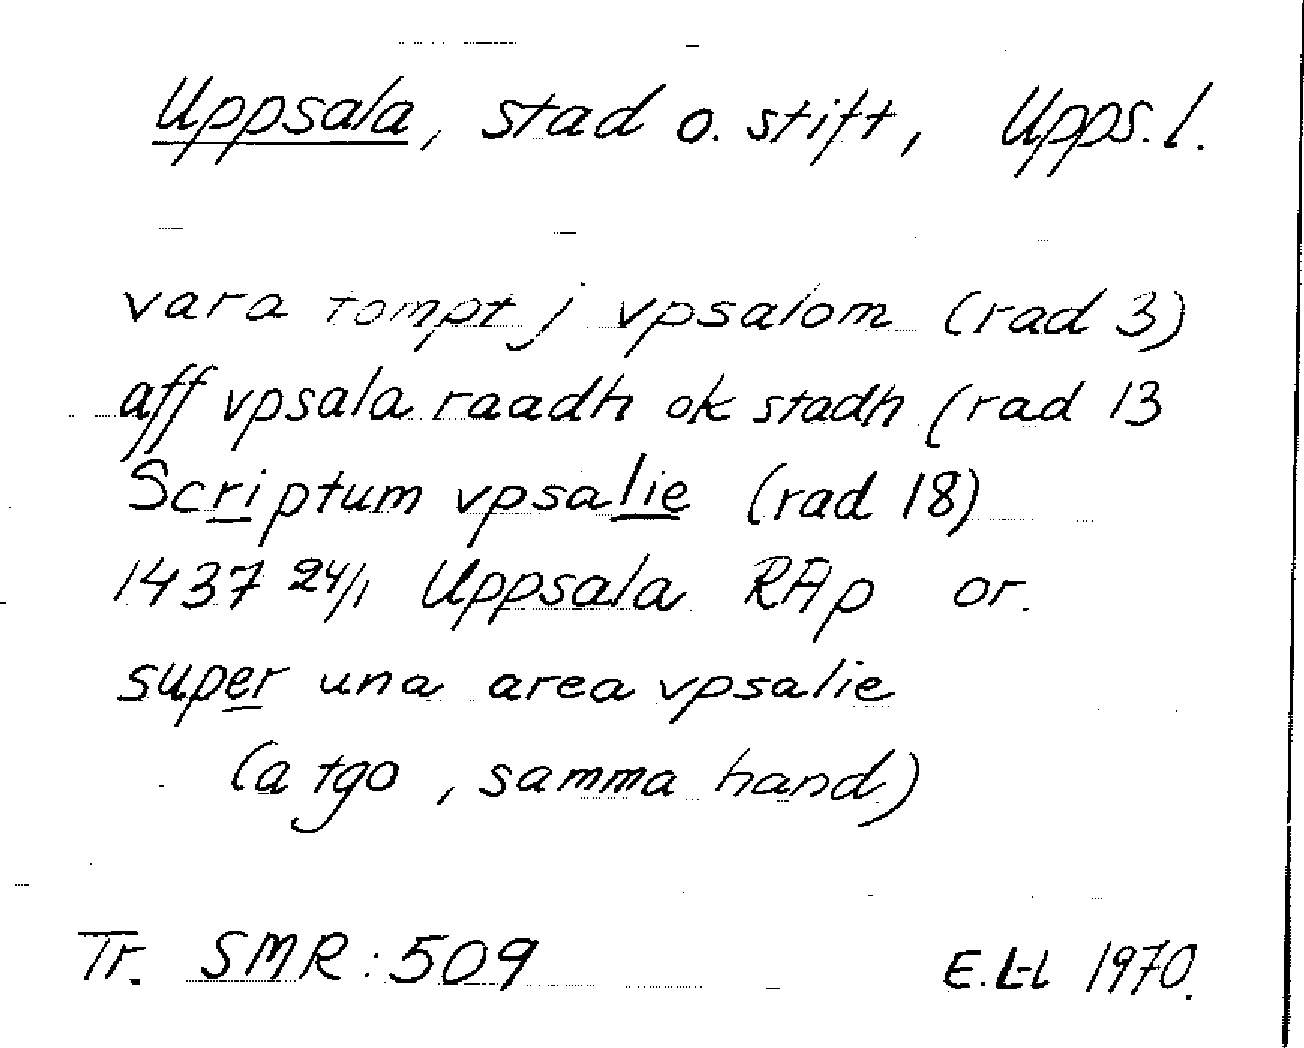 Uppsala, stad o. stift, Upps. l.
vara tompt j vpsalom (rad 3)
aff vpsala raadh ok stadh (rad 13
Scriptum vpsalie (rad 18)
1437 24/1 Uppsala RAp or.
super una area vpsalie
(a tgo, samma hand)
Tr. SMR: 509 E. L-l 1970.